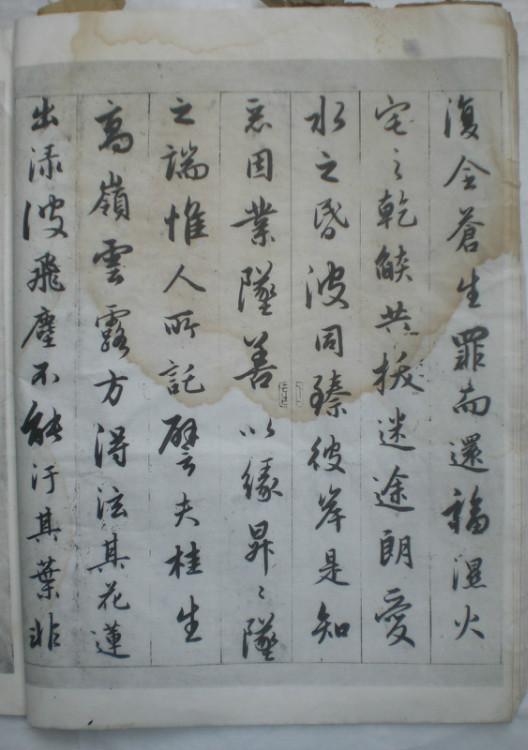 復令蒼生罪而還福濕火
宅之乾燄共拔迷途朗愛
水之昬波同臻彼岸是知
惡因業墜善以緣昇〻墜
之端惟人所託譬夫桂生
高嶺雲露方得泫其花蓮
出淥波飛塵不能汙其葉非